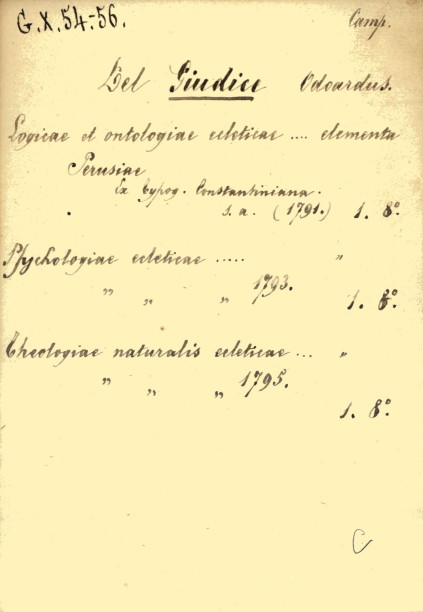 G.X.54-56.
Camp.
Del Giudice Odoardus.
Logicae et ontologiae ecleticae .... elementa
Perusiae
Ex typog. Constantiniana.
s. a. (1791.) 1. 8°.
Psychologiae ecleticae ..... "
" " " 1793.
1. 8°.
Theologiae naturalis ecleticae ... "
" " " 1795.
1. 8°.
C